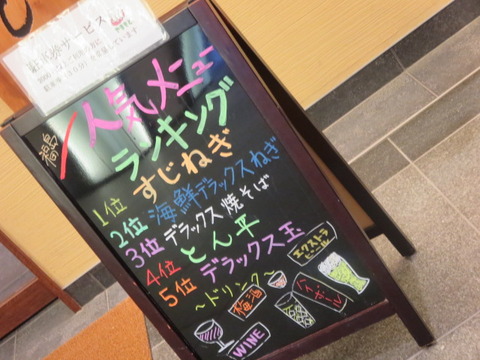 駐車券サービス
人気メニュー
ランキング
1位 すじねぎ
2位 海鮮デラックスねぎ
3位 デラックス焼そば
4位 とん平
5位 デラックス玉
～ドリンク～
エクストラ
梅酒
ハイボール
WINE